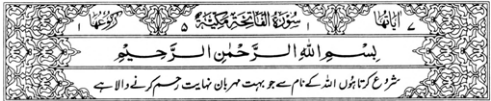 اٰیاتها ۷ ۱ سُوْرَةُ الْفَاتِحَةِ مَكِّيَّةٌ ۵ رکوعها ۱
بِسْمِ اللهِ الرَّحْمٰنِ الرَّحِيْمِ
شروع کرتا ہوں اللہ کے نام سے جو بہت مہربان نہایت رحم کرنے والا ہے